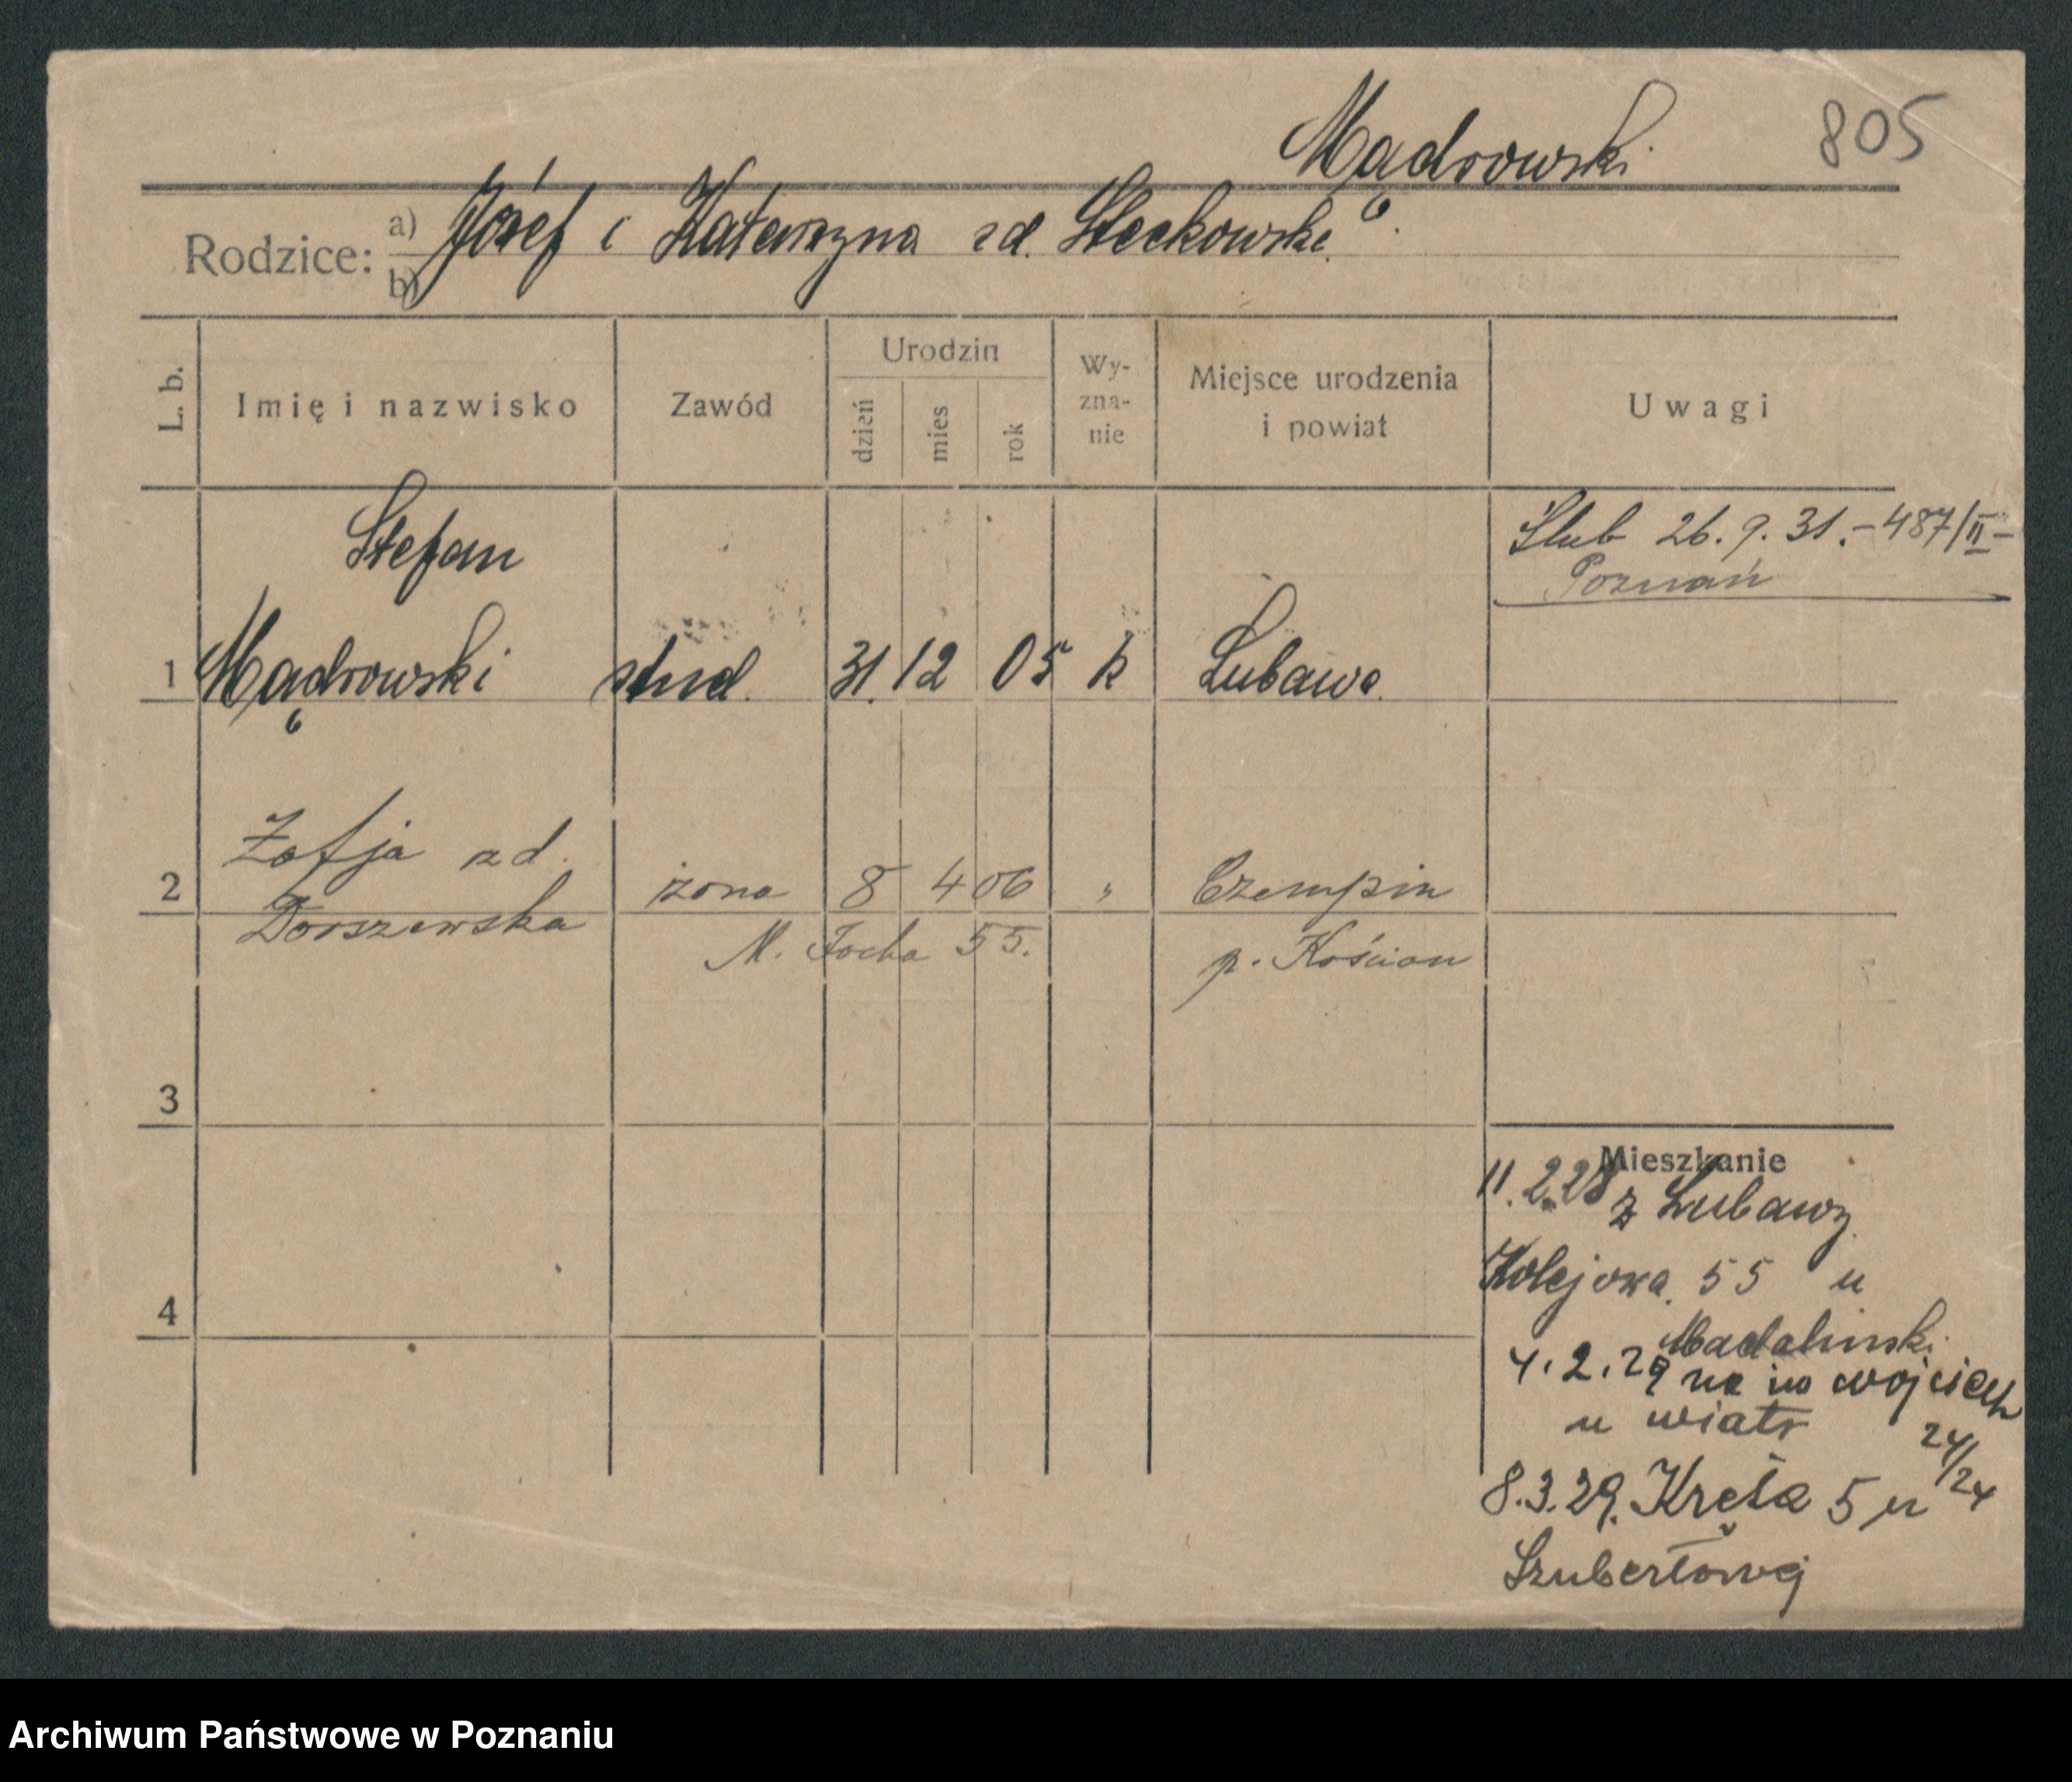 805
Mądrowski
Rodzice: a) Józef i Katarzyna zd. Steckowska.
b)
L. b. Imię i nazwisko Zawód Urodzin dzień mies rok Wy-zna-nie Miejsce urodzenia i powiat Uwagi
Ślub 26. 9. 31. – 487/II –
Poznań
Stefan
1 Mądrowski stud. 31. 12 05 k Lubawa.
Zofja zd.
2 Dorszewska żona 8 4 06 " Czempin
M. Focha 55. p. Kościan
3
Mieszkanie
11. 2. 28 z Lubawy.
Kolejowa. 55 u
4
Madalinski
4. 2. 29 na św wojciech
u wiatr 24/24
8. 3. 29. Kręta 5 u
Szubertowej
Archiwum Państwowe w Poznaniu